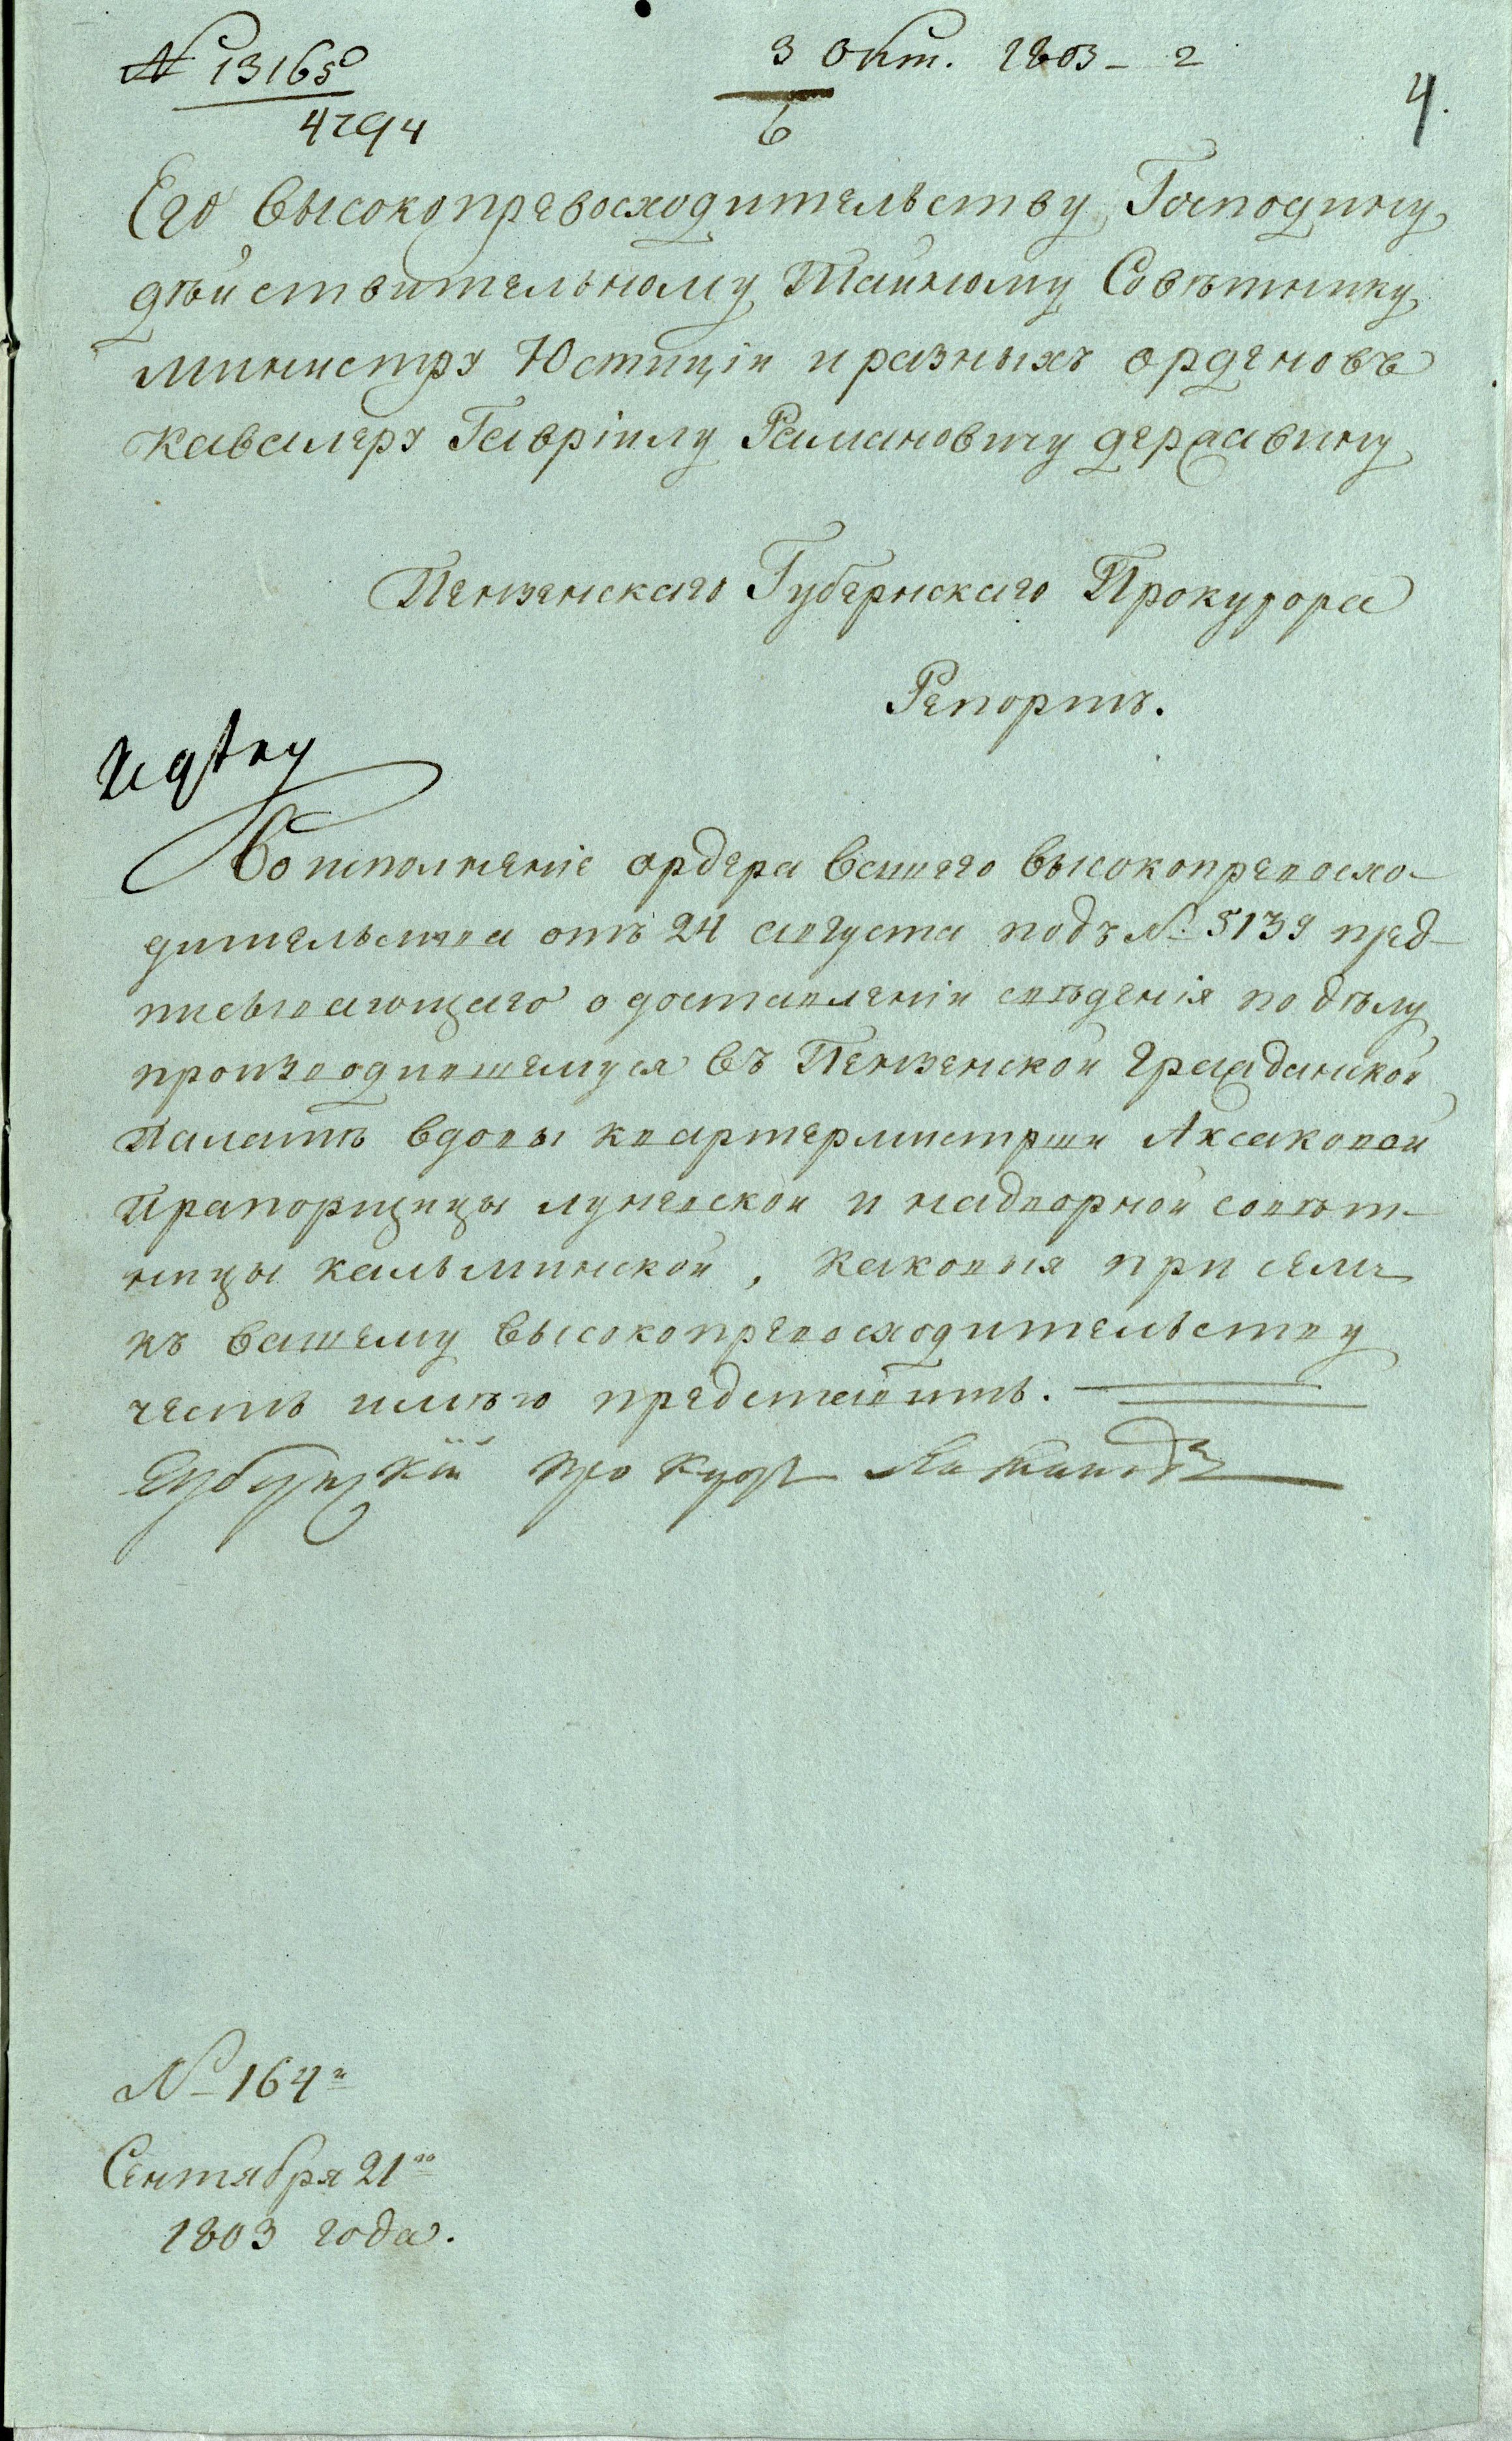 № 13165
4294
3 Окт. 1803 - г
6
4.
Его Высокопревосходительству Господину
дѣйствительному Тайному Совѣтнику
министру Юстиціи и разныхъ орденовъ
кавалеру Гавріилу Романовичу державину
Пензенскаго Губернскаго Прокурора
Репортъ.
К дѣлу
Во исполненіе ордера вашего высокопревосхо-
дительства отъ 24 августа подъ № 5139 пред-
писывающаго о доставленіи свѣденія по дѣлу
производившемуся въ Пензенской гражданской
Палатѣ вдовы квартермистрши Аксаковой
Прапорщицы луневской и надворной совѣт-
ницы кальминской, каковыя при семъ
къ вашему высокопревосходительству
честь имѣю представить.
Губернскій прокуроръ
№ 164
Сентября 21го
1803 года.